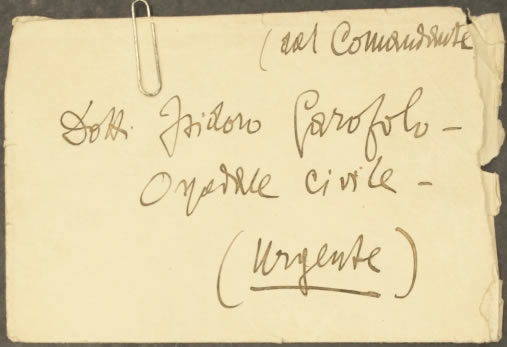 (dal Comandante
Dott. Isidoro Garofolo -
Ospedale civile -
(Urgente)